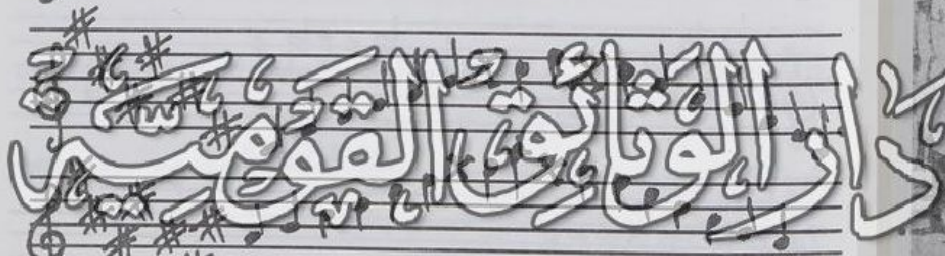 دار الوثائق القومية